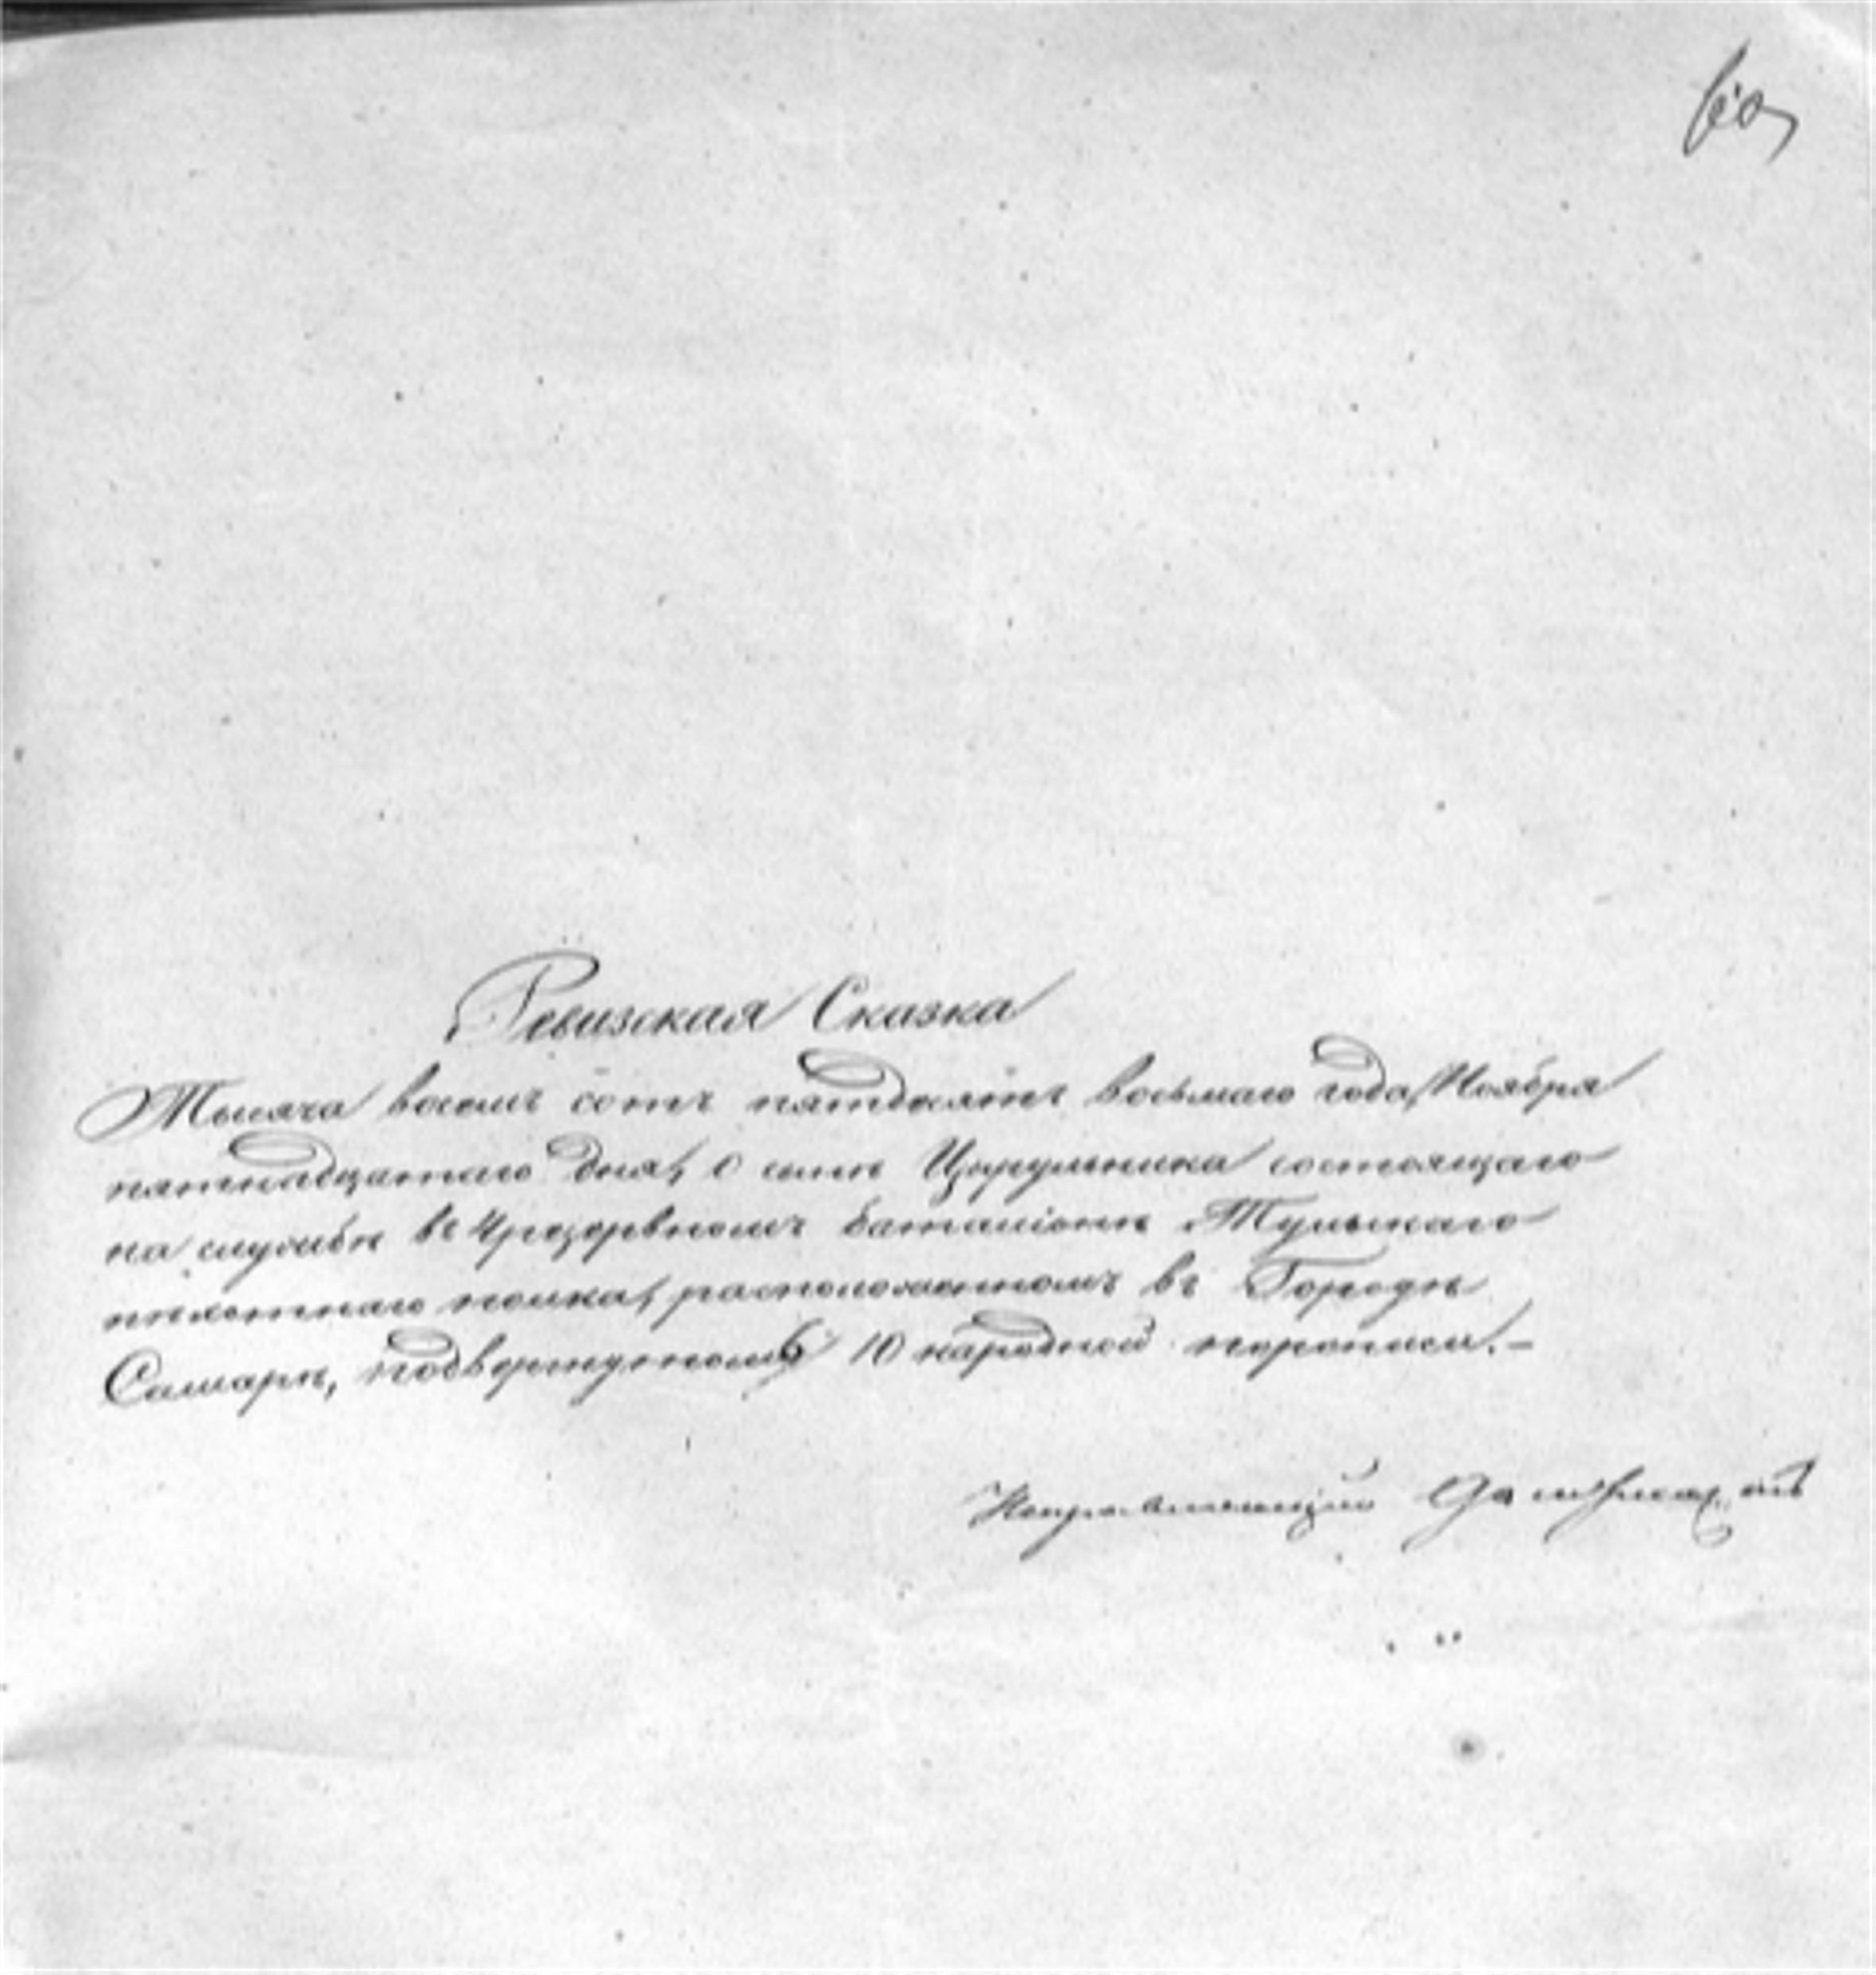 Ревизская Сказка
Тысяча восемь сотъ пятдесятъ восьмаго года, Ноября
пятнадцатаго дня, о сынѣ Цырульника состоящаго
на службѣ въ 4 резервномъ баталіонѣ Тульскаго
пѣхотнаго полка, расположенномъ въ Городѣ
Самарѣ, подвергнутому 10 народной переписи.-